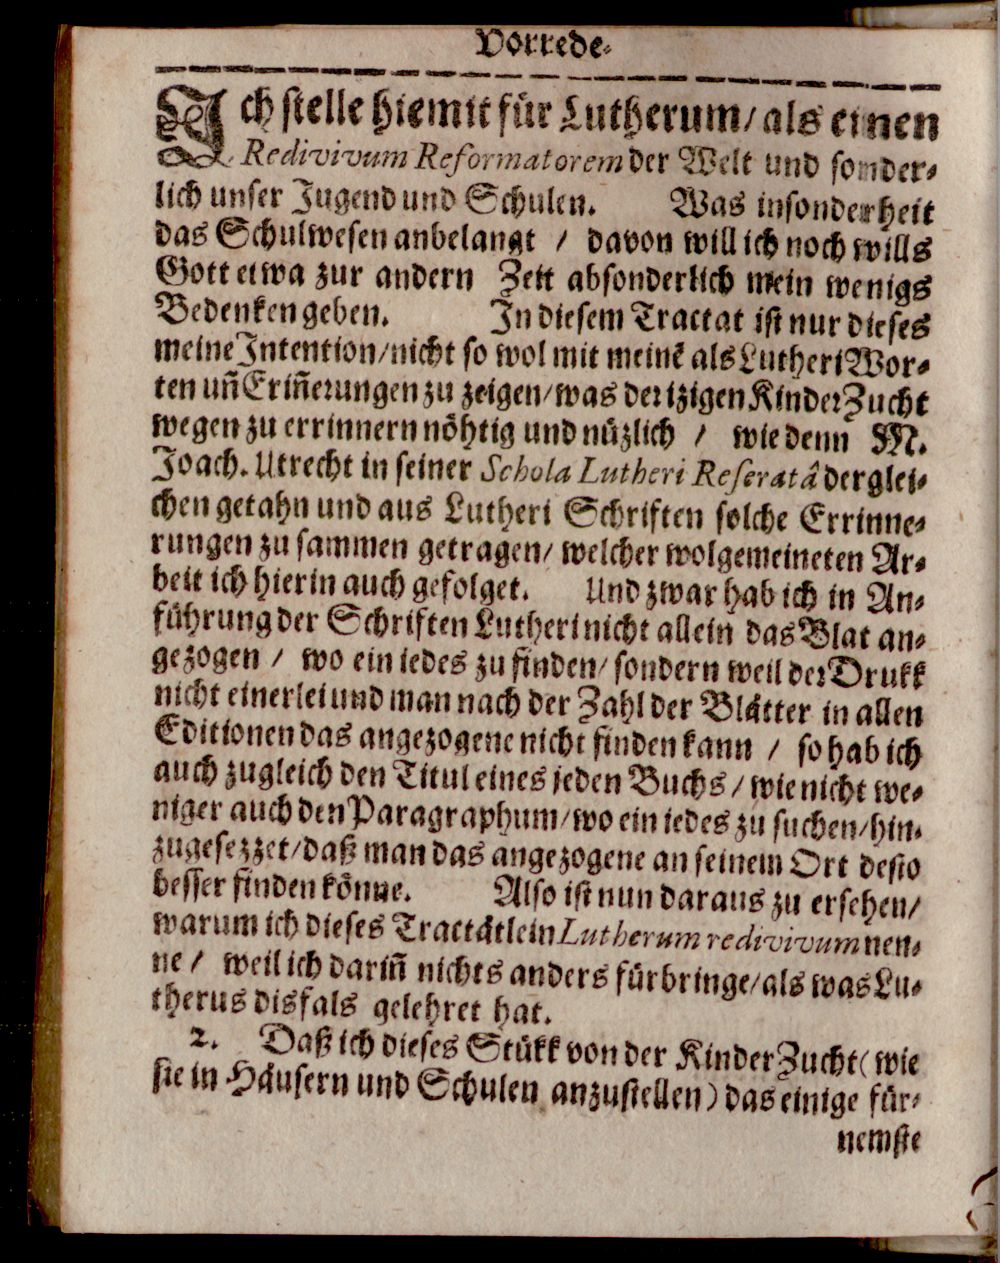 Vorrede.
Ich stelle hiemit für Lutherum/ als einen
Redivivum Reformatorem der Welt und sonder-
lich unser Jugend und Schulen. Was insonderheit
das Schulwesen anbelangt / davon will ich noch wills
Gott etwa zur andern Zeit absonderlich mein wenigs
Bedenken geben. In diesem Tractat ist nur dieses
meine Intention/nicht so wol mit meinẽ als Lutheri Wor-
ten uñ Eriñerungen zu zeigen/was der izigen KinderZucht
wegen zu errinnern nöhtig und nüzlich / wie denn M.
Joach. Utrecht in seiner Schola Lutheri Reseratâ derglei-
chen getahn und aus Lutheri Schriften solche Errinne-
rungen zu sammen getragen/ welcher wolgemeineten Ar-
beit ich hierin auch gefolget. Und zwar hab ich in An-
führung der Schriften Lutheri nicht allein das Blat an-
gezogen / wo ein iedes zu finden/ sondern weil der Drukk
nicht einerlei und man nach der Zahl der Blätter in allen
Editionen das angezogene nicht finden kann / so hab ich
auch zugleich den Titul eines jeden Buchs / wie nicht we-
niger auch den Paragraphum/wo ein iedes zu suchen/hin-
zugesezzet/daß man das angezogene an seinem Ort desto
besser finden könne. Also ist nun daraus zu ersehen/
warum ich dieses Tractätlein Lutherum redivivum nen-
ne / weil ich dariñ nichts anders fürbringe/als was Lu-
therus disfals gelehret hat.
2. Daß ich dieses Stükk von der KinderZucht (wie
sie in Häusern und Schulen anzustellen) das einige für-
nemste